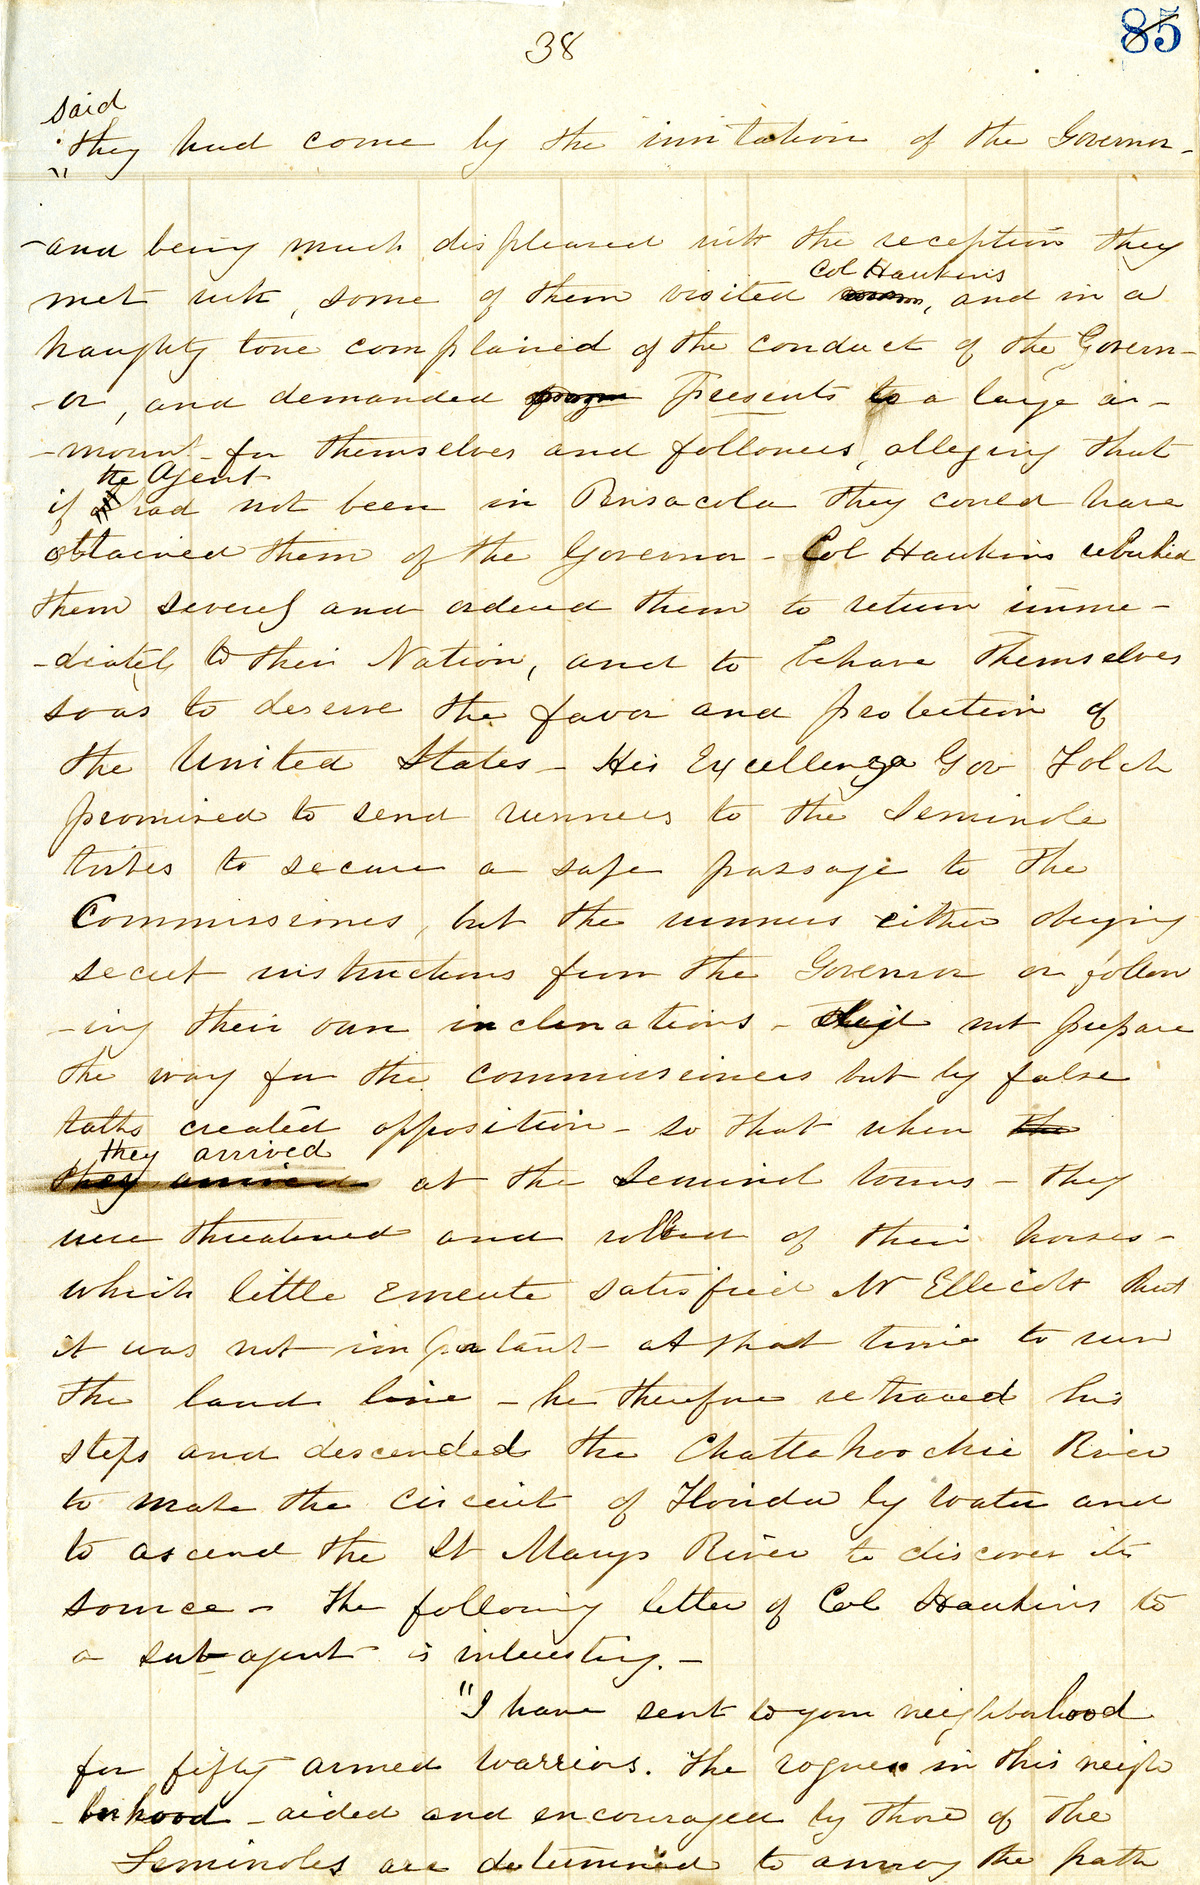 38
85
said
"they had come by the invitation of the Governor-
-and being much displeased with the reception they
met with, some of them visited Col Hawkins, and in a
haughty tone complained of the conduct of the Govern-
-or, and demanded presents to a large a-
-mount for themselves and followers, alleging that
if the Agent had not been in Pensacola they could have
obtained them of the Governor - Col Hawkins rebuked
them severely and ordered them to return imme-
-diately to their Nation, and to behave themselves
so as to deserve the favor and protection of
the United States - His Excellency Gov Folch
promised to send runners to the Seminole
tribes to secure a safe passage to the
Commissioners, but the runners either obeying
secret instructions from the Governor or follow
-ing their own inclinations - did not prepare
the way for the commissioners but by false
talks created opposition - so that when the
they arrived
they arrived at the Seminol towns - they
were threatened and robbed of their horses -
which little emeute satisfied Mr Ellicott that
it was not important at that time to run
the land line - he therefore retraced his
steps and descended the Chattahoochie River
to make the circuit of Florida by water and
to ascend the St Marys River to discover its
source - The following letter of Col Hawkins to
a sub agent is interesting. -
"I have sent to your neighborhood
for fifty armed warriors. The rogues in this neigh
-borhood - aided and encouraged by those of the
Seminoles are determined to annoy the path